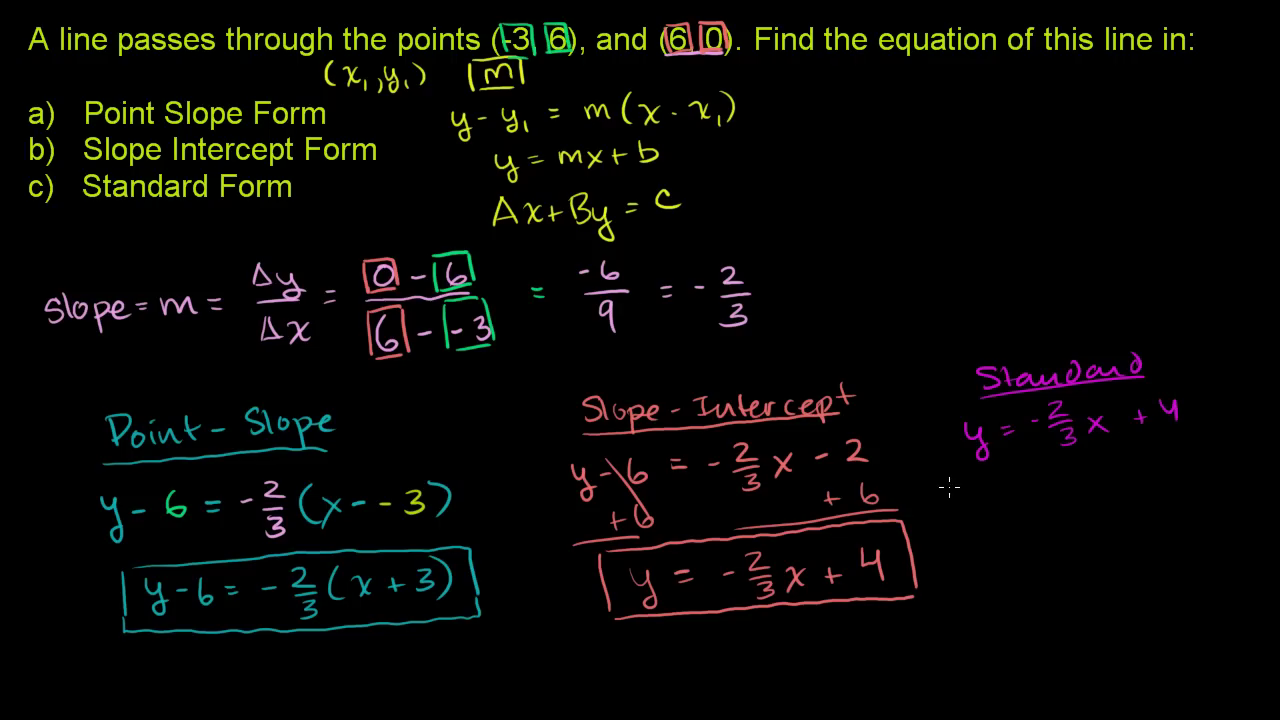 A line passes through the points (-3, 6), and (6, 0). Find the equation of this line in:
(x₁, y₁) m
a) Point Slope Form
y - y₁ = m(x - x₁)
b) Slope Intercept Form
y = mx + b
c) Standard Form
Ax + By = C
Slope = m = Δy/Δx = (0 - 6)/(6 - -3) = -6/9 = -2/3
Point-Slope
y - 6 = -2/3 (x - -3)
y - 6 = -2/3 (x + 3)
Slope-Intercept
y - 6 = -2/3 x - 2
+6 + 6
y = -2/3 x + 4
Standard
y = -2/3 x + 4